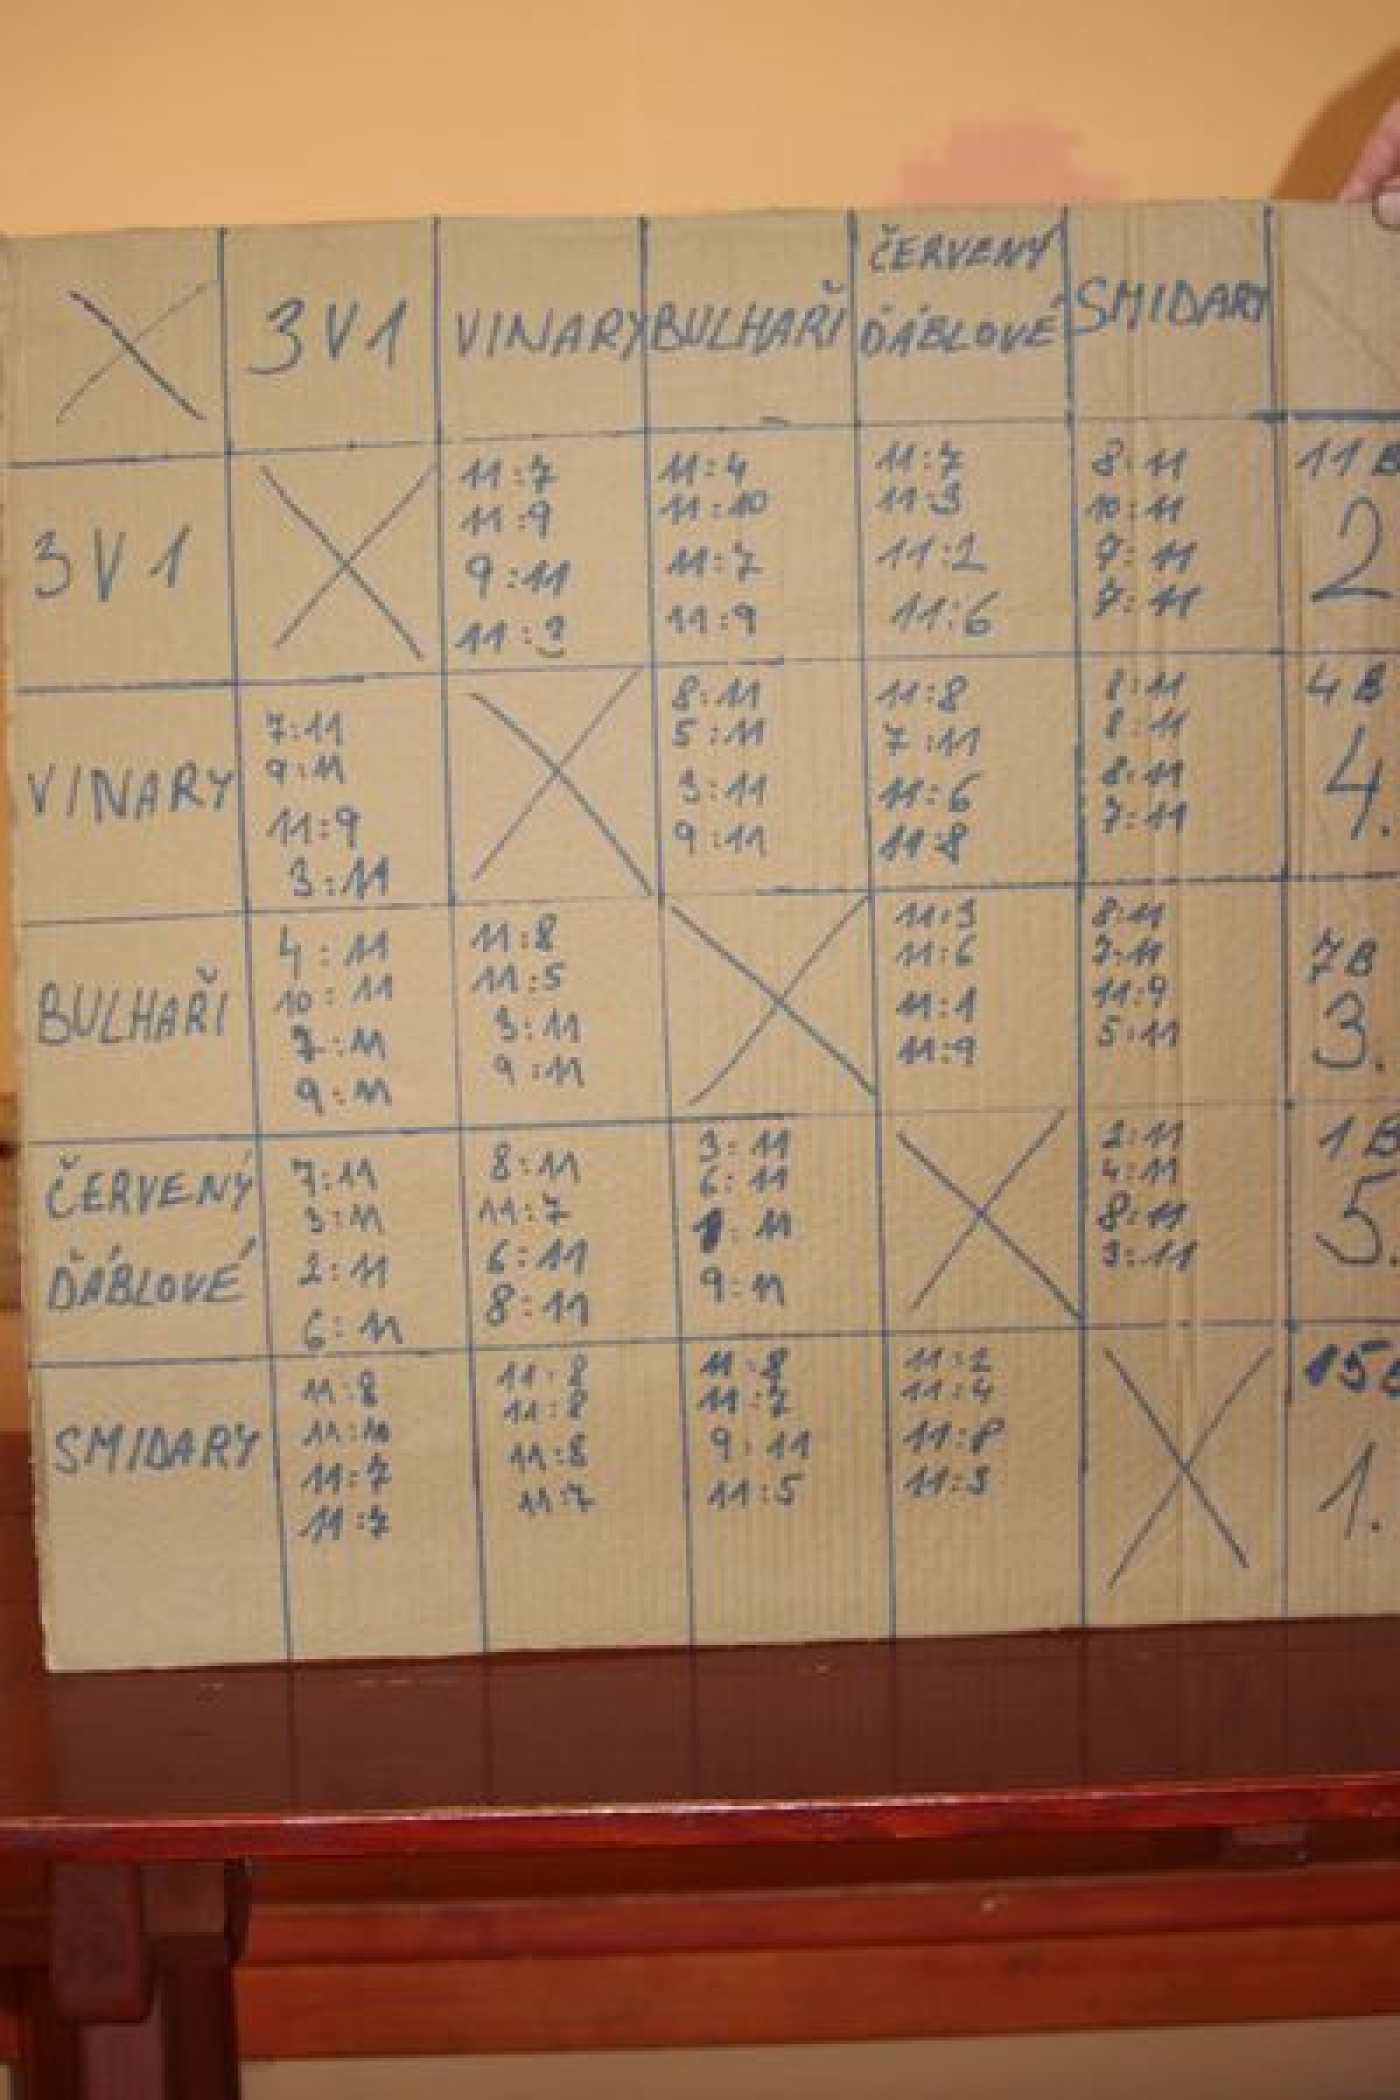 3V1 VINARY BULHAŘI ČERVENÝ ĎÁBLOVÉ SMIDARY
3V1
11:7
11:9
9:11
11:3
11:4
11:10
11:7
11:9
11:7
11:3
11:2
11:6
8:11
10:11
7:11
7:11
11B
2
VINARY
7:11
9:11
11:9
3:11
8:11
5:11
3:11
9:11
11:8
7:11
11:6
11:8
8:11
8:11
8:11
7:11
4B
4.
BULHAŘI
4:11
10:11
7:11
9:11
11:8
11:5
3:11
9:11
11:3
11:6
11:1
11:9
8:11
7:11
11:9
5:11
7B
3.
ČERVENÝ
ĎÁBLOVÉ
7:11
3:11
2:11
6:11
8:11
11:7
6:11
8:11
3:11
6:11
1:11
9:11
2:11
4:11
8:11
3:11
1B
5.
SMIDARY
11:8
11:10
11:7
11:7
11:8
11:8
11:8
11:7
11:8
11:7
9:11
11:5
11:2
11:4
11:8
11:3
15B
1.